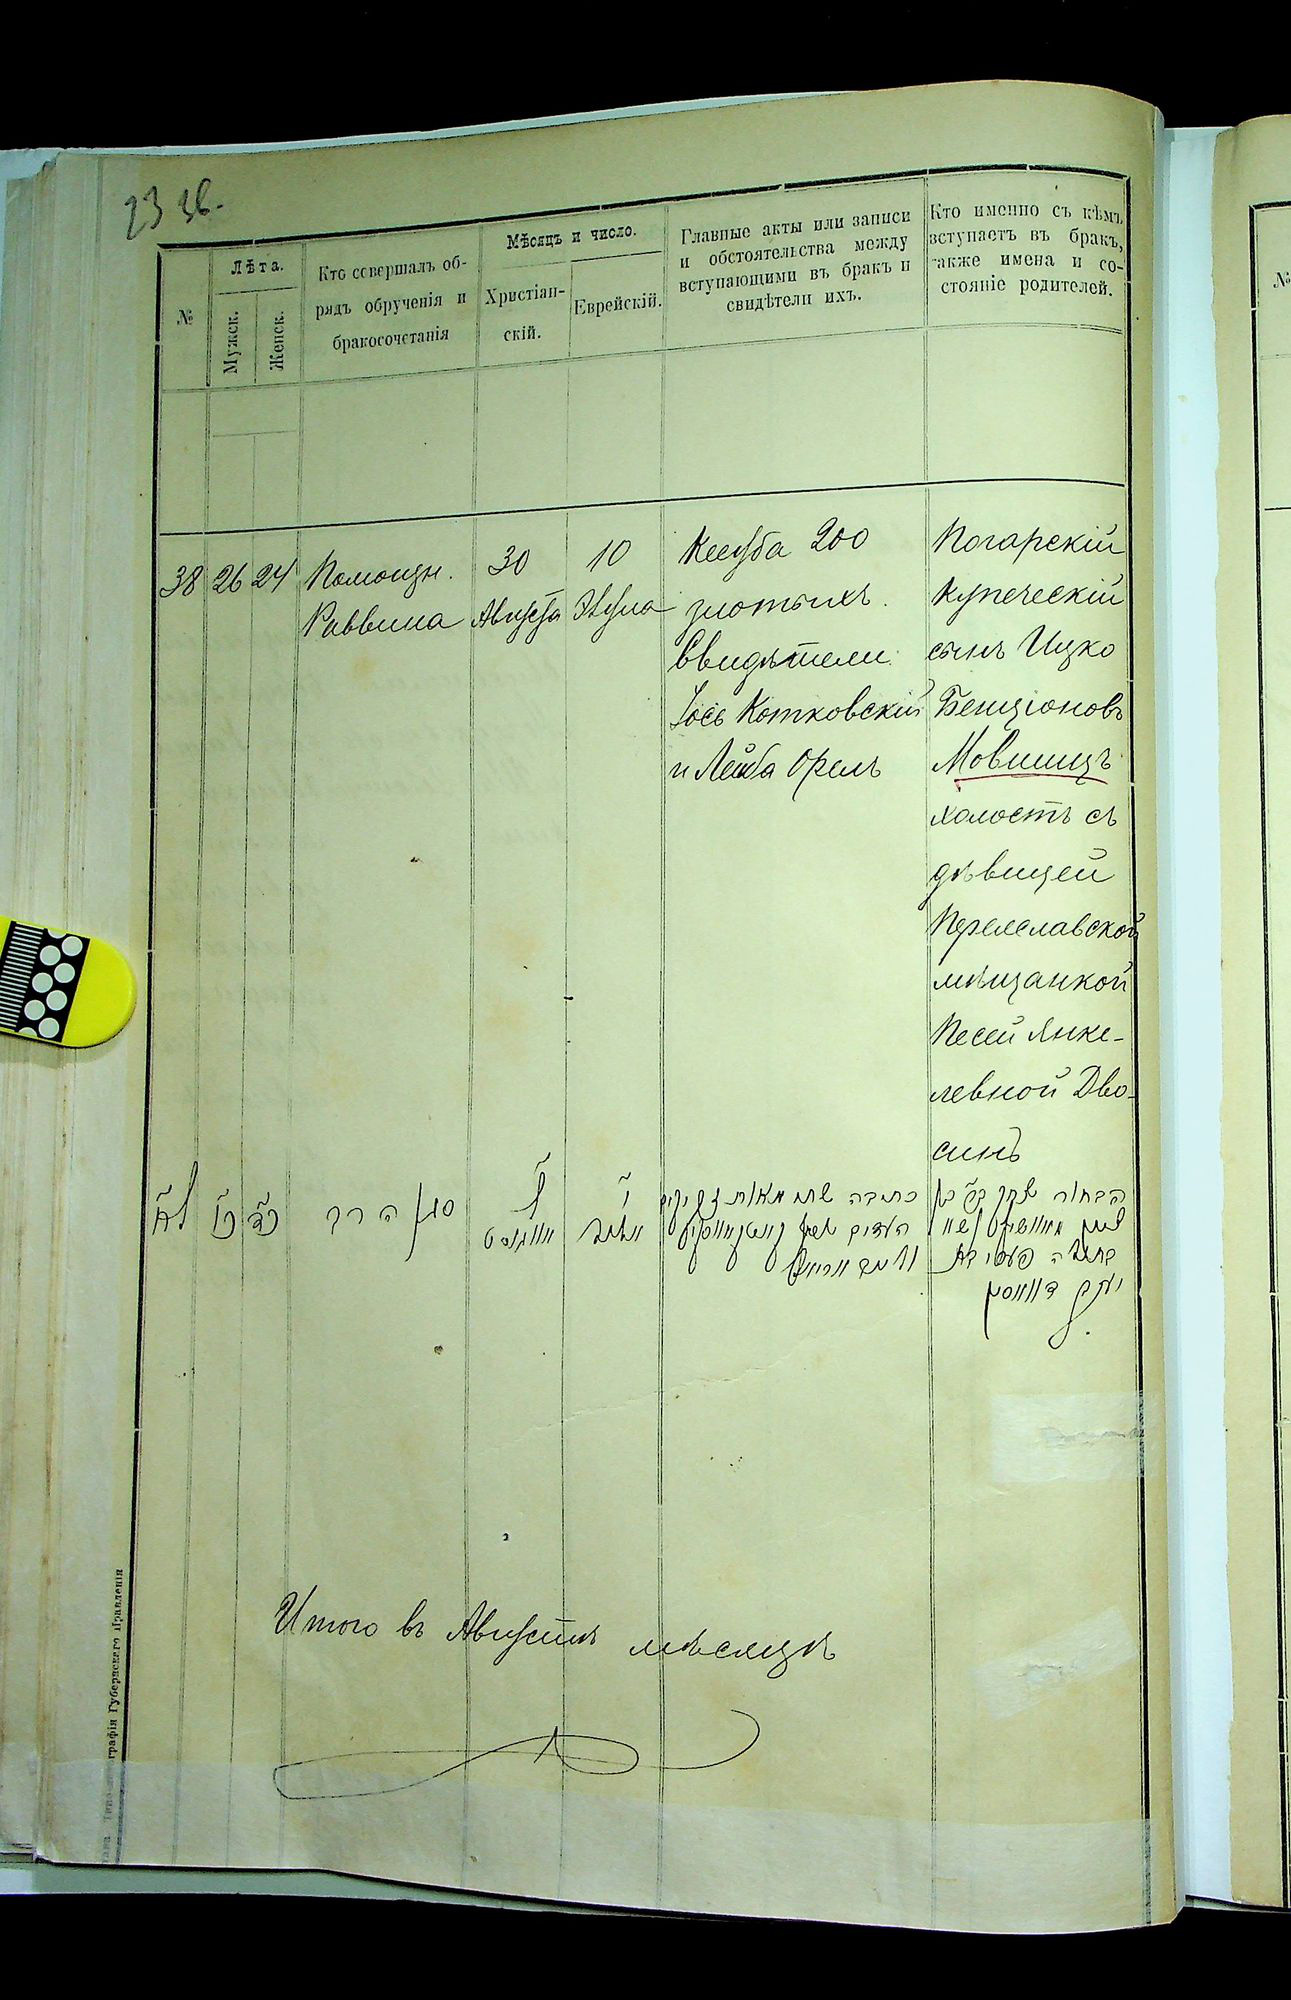 23 зв.
№
Лѣта.
Мужск.
Женск.
Кто совершалъ об-
рядъ обрученія и
бракосочетанія
Мѣсяцъ и число.
Христіан-
скій.
Еврейскій.
Главные акты или записи
и обстоятельства между
вступающими въ бракъ и
свидѣтели ихъ.
Кто именно съ кѣмъ
вступаетъ въ бракъ,
также имена и со-
стояніе родителей.
№
38 26 24 Помощн.
Раввина
30
Августа
10
Элула
Кесуба 200
злотыхъ.
Свидѣтели
Іось Котковскій
и Лейба Орелъ
Погарскій
купеческій
сынъ Ицко
Бенціоновъ
Мовшицъ
холостъ съ
дѣвицей
Переяславской
мѣщанкой
Песей Янке-
левной Дво-
синъ
לח
כו
כד
סגן הרב
ל
אוגוסט
י
אלול
כתובה שתי מאות
העדים
הבחור יצחק בן
בתולה פעסי בת
יעקב דוואסין
Итого въ Августѣ мѣсяцѣ
графія Губернскаго Правленія